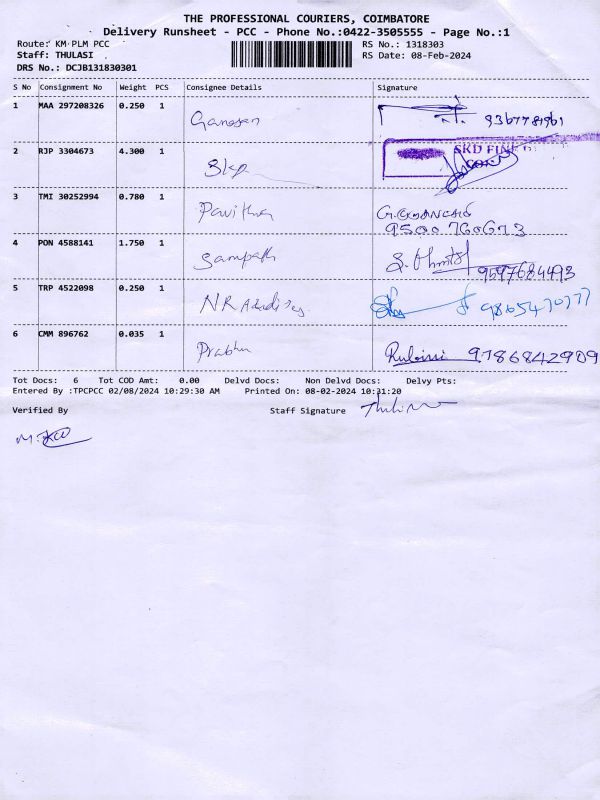 THE PROFESSIONAL COURIERS, COIMBATORE
Delivery Runsheet - PCC - Phone No.:0422-3505555 - Page No.:1
Route: KM PLM PCC RS No.: 1318303
Staff: THULASI . RS Date: 08-Feb-2024
DRS No.: DCJB131830301
S No Consignment No Weight PCS Consignee Details Signature
1 MAA 297208326 0.250 1 Ganesan
2 RJP 3304673 4.300 1 Skp SKD FIN
3 TMI 30252994 0.780 1 Pavithra
9500760673
4 PON 4588141 1.750 1 Sampath 9597684493
5 TRP 4522098 0.250 1 NR
6 CMM 896762 0.035 1 Prabhu 9786842909
Tot Docs: 6 Tot COD Amt: 0.00 Delvd Docs: Non Delvd Docs: Delvy Pts:
Entered By :TPCPCC 02/08/2024 10:29:30 AM Printed On: 08-02-2024 10:31:20
Verified By Staff Signature